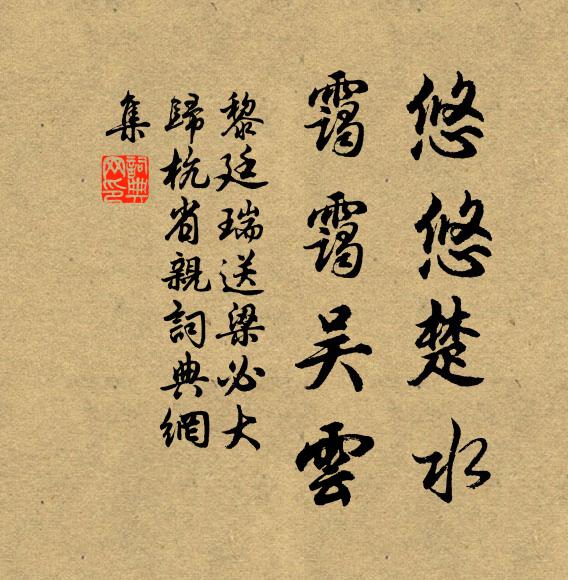 悠悠楚水
靄靄吴雲
黎廷瑞送梁必大
歸杭省親詞典網
集
詞典網印